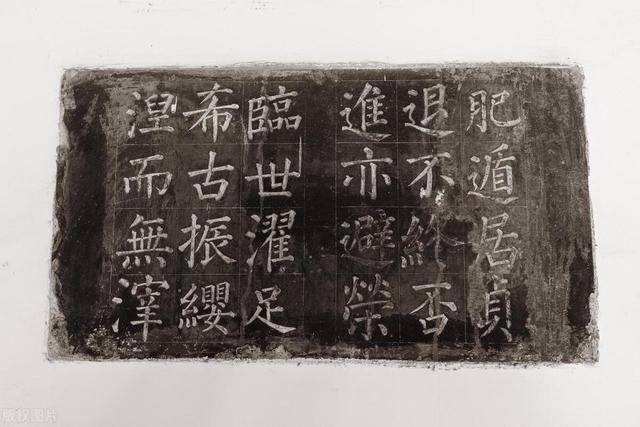 肥遁居貞
退不終否
進亦避榮
臨世濯足
希古振纓
涅而無滓
版权图片